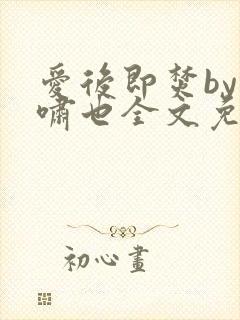 愛後即焚by
嘯也全文免
初心畫